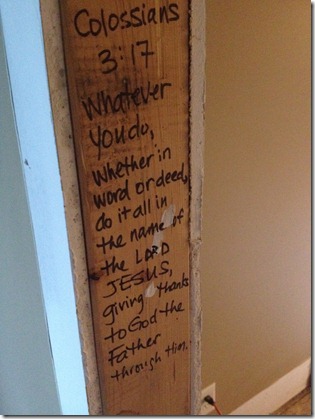 Colossians
3:17
Whatever
you do,
whether in
word or deed,
do it all in
the name of
the LORD
JESUS,
giving thanks
to God the
Father
through Him.